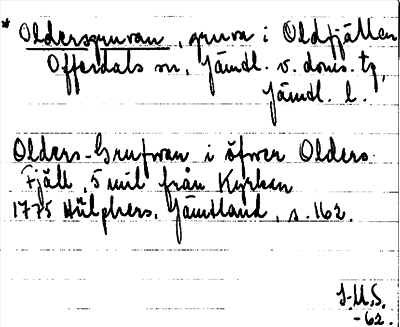 * Oldersgruvan, gruva i Oldfjällen
Offerdals sn, Jämtl. v. doms. tg,
Jämtl. l.
Olders-Grufvan i öfwer Olders
Fjäll, 5 mil från Kyrkan
1775 Hülphers, Jämtland, s. 162.
J.M.S.
-62.